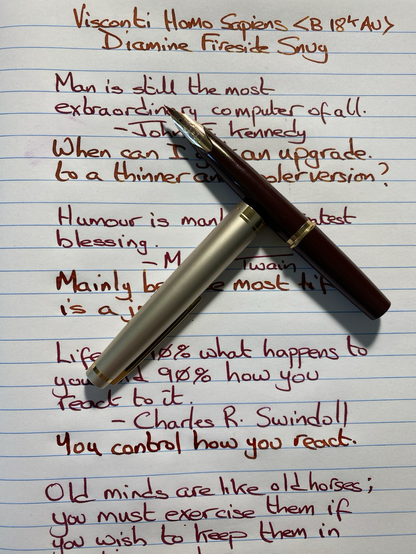 Visconti Homo Sapiens <B 18k Au>
Diamine Fireside Snug
Man is still the most
extraordinary computer of all.
- John F. Kennedy
When can I an upgrade.
to a thinner version?
Humour is
blessing.
- Twain
Mainly most
is a
Life 10% what happens to
90% how you
react to it.
- Charles R. Swindoll
You control how you react.
Old minds are like old horses;
you must exercise them if
you wish to keep them in